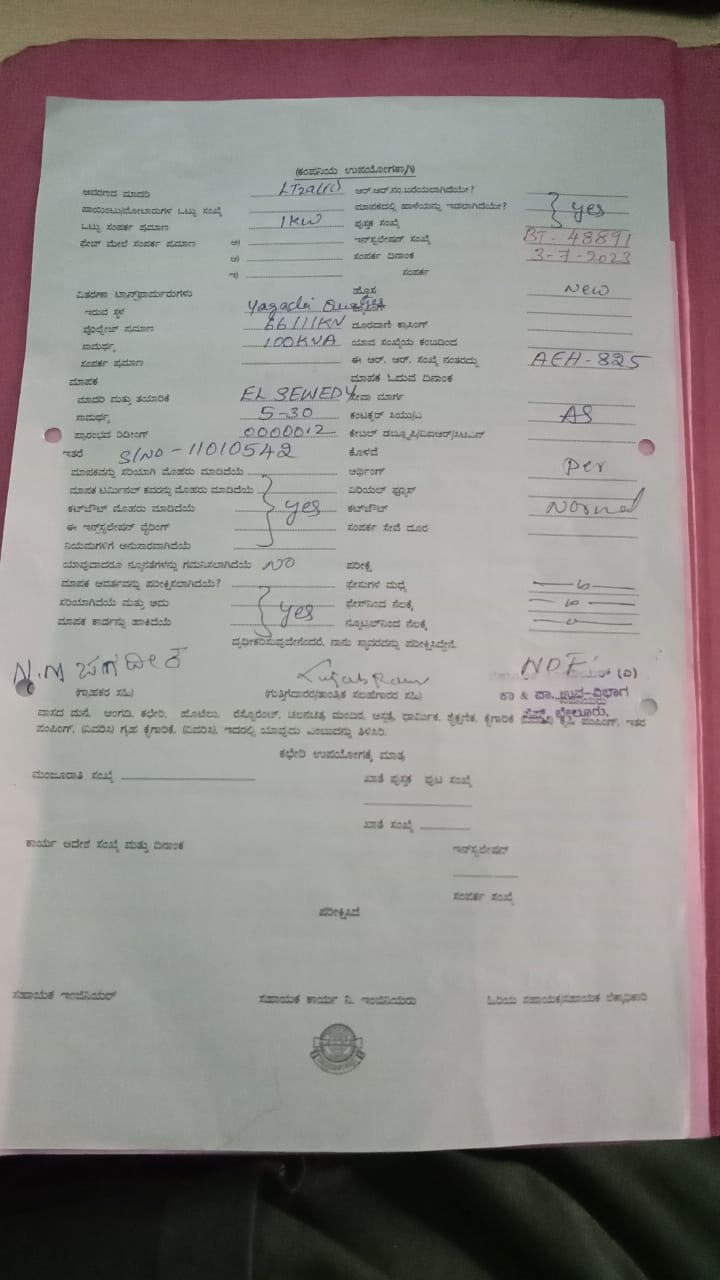 (ಕಂಪನಿಯ ಉಪಯೋಗಕ್ಕಾಗಿ)
ಆವರಣದ ಮಾದರಿ ಆರ್.ಆರ್.ನಂ.ಬರೆಯಲಾಗಿದೆಯೇ?
ಪಾಯಿಂಟು/ಮೋಟಾರುಗಳ ಒಟ್ಟು ಸಂಖ್ಯೆ ಮಾಪಕದಲ್ಲಿ ಹಾಳೆಯನ್ನು ಇಡಲಾಗಿದೆಯೇ? yes
ಒಟ್ಟು ಸಂಪರ್ಕ ಪ್ರಮಾಣ 1KW ಪುಸ್ತಕ ಸಂಖ್ಯೆ
ಫೇಸ್ ಮೇಲೆ ಸಂಪರ್ಕ ಪ್ರಮಾಣ ಅ) ಇನ್‌ಸ್ಟಲೇಷನ್ ಸಂಖ್ಯೆ BT-48891
ಆ) ಸಂಪರ್ಕ ದಿನಾಂಕ 3-7-2023
ಇ) ಸಂಪರ್ಕ
ವಿತರಣಾ ಟ್ರಾನ್ಸ್‌ಫಾರ್ಮರುಗಳು ಹೊಸ New
ಇರುವ ಸ್ಥಳ Yagachi
ವೋಲ್ಟೇಜ್ ಪ್ರಮಾಣ 66/11KV ದೂರವಾಣಿ ಕ್ರಾಸಿಂಗ್
ಸಾಮರ್ಥ್ಯ 100KVA ಯಾವ ಸಂಖ್ಯೆಯ ಕಂಬದಿಂದ
ಸಂಪರ್ಕ ಪ್ರಮಾಣ ಈ ಆರ್. ಆರ್. ಸಂಖ್ಯೆ ನಂತರದ್ದು AEH-825
ಮಾಪಕ ಮಾಪಕ ಓದುವ ದಿನಾಂಕ
ಮಾದರಿ ಮತ್ತು ತಯಾರಿಕೆ EL SEWEDY ಸೇವಾ ಮಾರ್ಗ
ಸಾಮರ್ಥ್ಯ 5-30 AS
ಪ್ರಾರಂಭದ ರಿಡಿಂಗ್ 000001.2
ಇತರೆ S/NO-11010542 ಕೊಳವೆ
ಮಾಪಕವನ್ನು ಸರಿಯಾಗಿ ಮೊಹರು ಮಾಡಿದೆಯೆ ಅರ್ಥಿಂಗ್ per
ಮಾಪಕ ಟರ್ಮಿನಲ್ ಕವರನ್ನು ಮೊಹರು ಮಾಡಿದೆಯೆ ಏರಿಯಲ್ ಫ್ಯೂಸ್
ಕಟ್‌ಔಟ್ ಮೊಹರು ಮಾಡಿದೆಯೆ yes ಕಟ್‌ಔಟ್ Normal
ಈ ಇನ್‌ಸ್ಟಲೇಷನ್ ವೈರಿಂಗ್ ಸಂಪರ್ಕ ಸೇವೆ ದೂರ
ನಿಯಮಗಳಿಗೆ ಅನುಸಾರವಾಗಿದೆಯೆ
ಯಾವುದಾದರೂ ನ್ಯೂನತೆಗಳನ್ನು ಗಮನಿಸಲಾಗಿದೆಯೆ NO ಪರೀಕ್ಷೆ
ಮಾಪಕ ಆವರ್ತವನ್ನು ಪರೀಕ್ಷಿಸಲಾಗಿದೆಯೆ? ಫೇಸುಗಳ ಮಧ್ಯೆ
ಸರಿಯಾಗಿದೆಯೆ ಮತ್ತು ಅದು yes ಫೇಸ್‌ನಿಂದ ನೆಲಕ್ಕೆ
ಮಾಪಕ ಕಾರ್ಡನ್ನು ಹಾಕಿದೆಯೆ ನ್ಯೂಟ್ರಲ್‌ನಿಂದ ನೆಲಕ್ಕೆ
ದೃಢೀಕರಿಸುವುದೇನೆಂದರೆ, ನಾನು ಸ್ಥಾವರವನ್ನು ಪರೀಕ್ಷಿಸಿದ್ದೇನೆ.
N.M ಜಗದೀಶ
(ಗ್ರಾಹಕರ ಸಹಿ) (ಗುತ್ತಿಗೆದಾರರ/ತಾಂತ್ರಿಕ ಸಲಹೆಗಾರರ ಸಹಿ) ಕಾ & ಪಾ. ಉಪ-ವಿಭಾಗ
ಬೇಲೂರು.
ವಾಸದ ಮನೆ, ಅಂಗಡಿ, ಕಛೇರಿ, ಹೊಟೆಲು, ರೆಸ್ಟೋರೆಂಟ್, ಚಲನಚಿತ್ರ ಮಂದಿರ, ಆಸ್ಪತ್ರೆ, ಧಾರ್ಮಿಕ, ಶೈಕ್ಷಣಿಕ, ಕೈಗಾರಿಕೆ ಪಂಪಿಂಗ್, ಇತರ
ಪಂಪಿಂಗ್, (ವಿವರಿಸಿ) ಗೃಹ ಕೈಗಾರಿಕೆ, (ವಿವರಿಸಿ), ಇದರಲ್ಲಿ ಯಾವುದು ಎಂಬುದನ್ನು ತಿಳಿಸಿರಿ.
ಕಛೇರಿ ಉಪಯೋಗಕ್ಕೆ ಮಾತ್ರ
ಮಂಜೂರಾತಿ ಸಂಖ್ಯೆ ಖಾತೆ ಪುಸ್ತಕ ಪುಟ ಸಂಖ್ಯೆ
ಖಾತೆ ಸಂಖ್ಯೆ
ಕಾರ್ಯ ಆದೇಶ ಸಂಖ್ಯೆ ಮತ್ತು ದಿನಾಂಕ ಇನ್‌ಸ್ಟಲೇಷನ್
ಸಂಪರ್ಕ ಸಂಖ್ಯೆ
ಪರೀಕ್ಷಿಸಿದೆ
ಸಹಾಯಕ ಇಂಜಿನಿಯರ್ ಸಹಾಯಕ ಕಾರ್ಯ ನಿ. ಇಂಜಿನಿಯರು ಹಿರಿಯ ಸಹಾಯಕ/ಸಹಾಯಕ ಲೆಕ್ಕಾಧಿಕಾರಿ